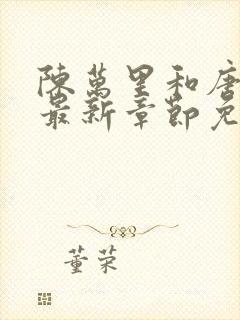 陳萬里和唐
最新章節免
董荣